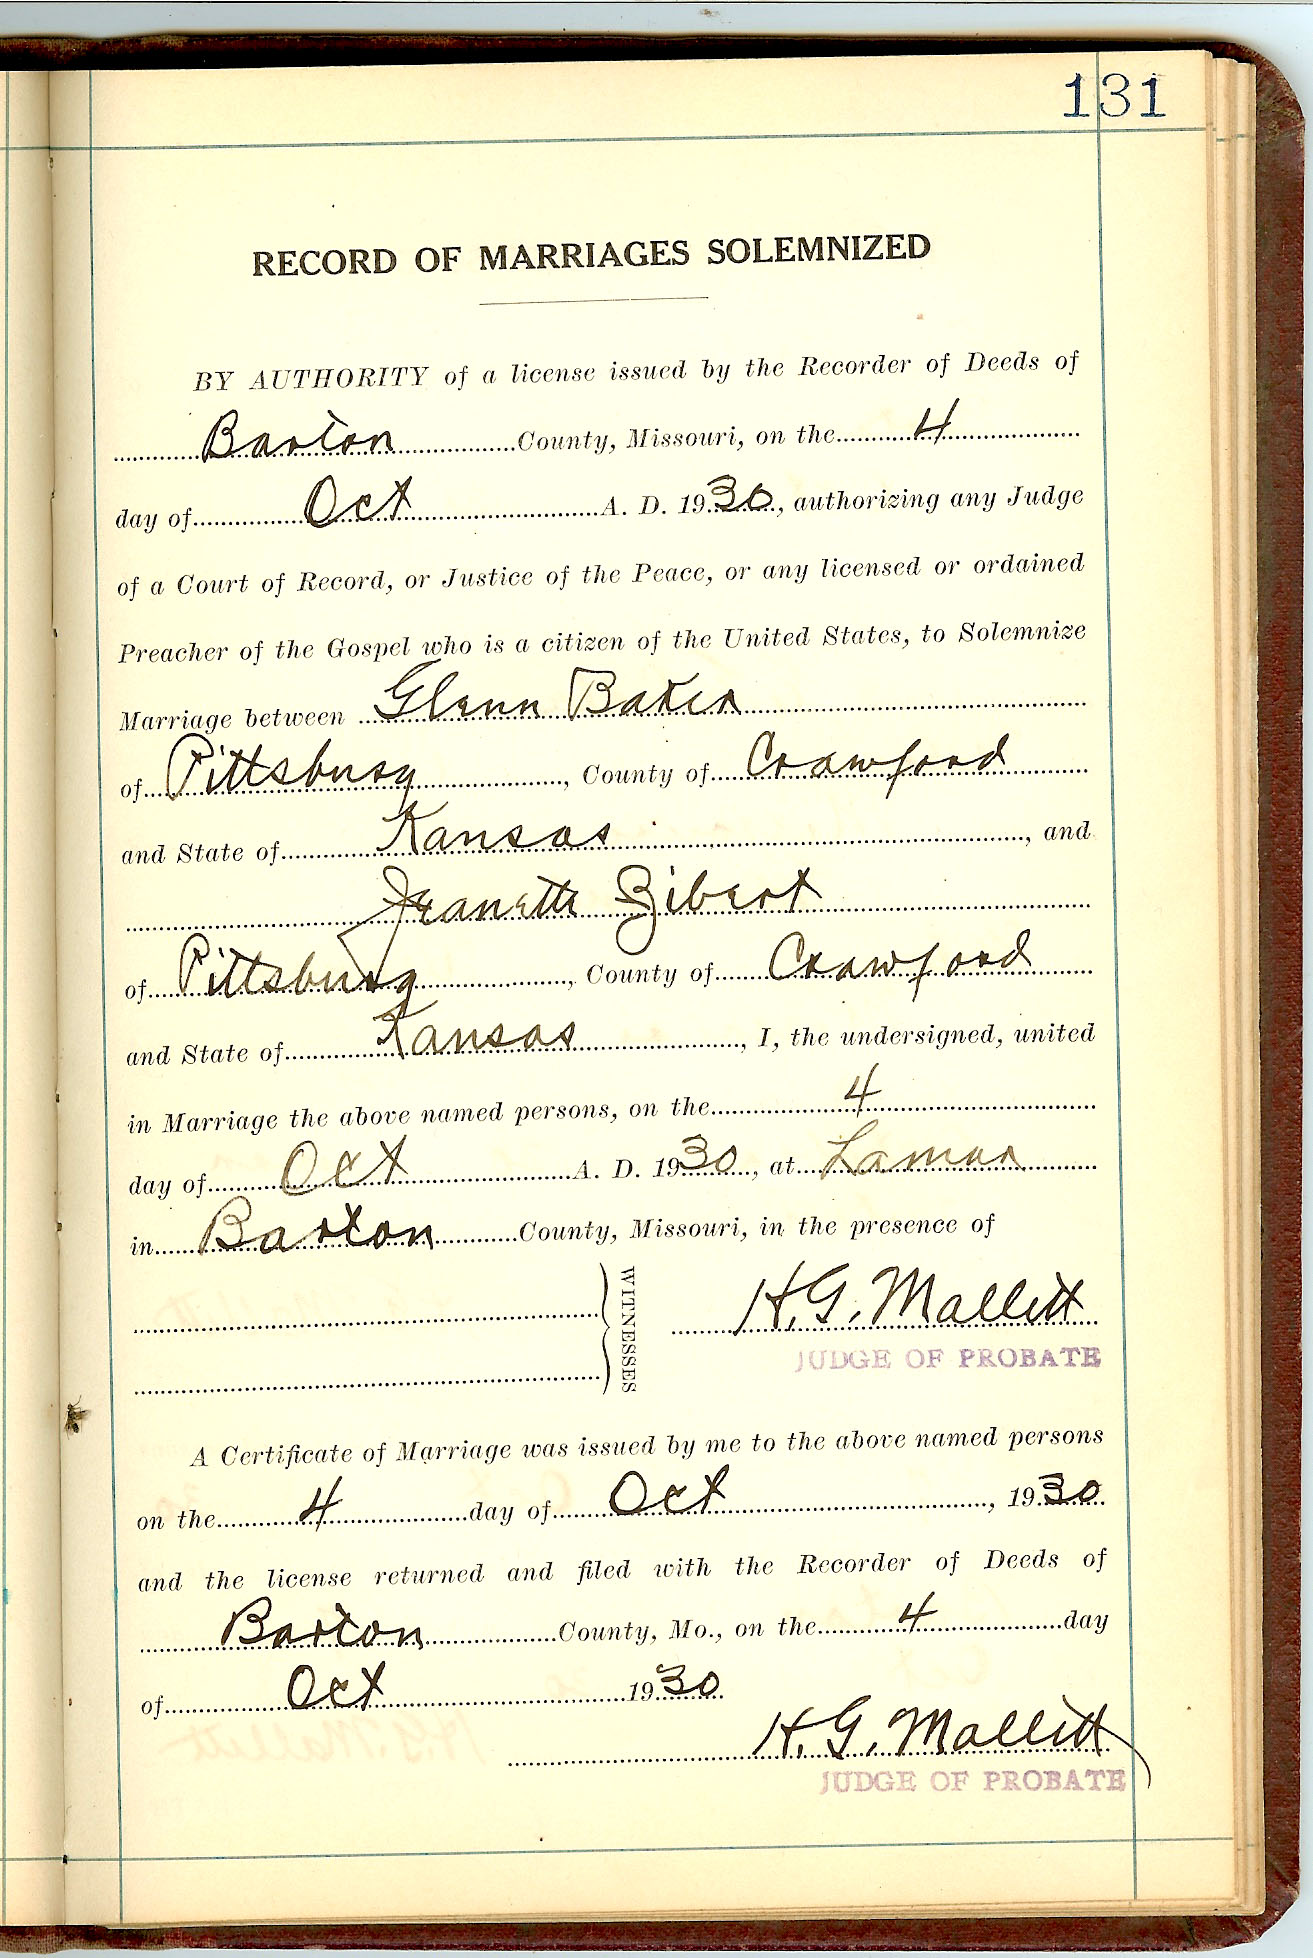 131
RECORD OF MARRIAGES SOLEMNIZED
BY AUTHORITY of a license issued by the Recorder of Deeds of
Barton County, Missouri, on the 4
day of Oct A. D. 1930, authorizing any Judge
of a Court of Record, or Justice of the Peace, or any licensed or ordained
Preacher of the Gospel who is a citizen of the United States, to Solemnize
Marriage between Glenn Baker
of Pittsburg, County of Crawford
and State of Kansas, and
Jeanette Zibert
of Pittsburg, County of Crawford
and State of Kansas, I, the undersigned, united
in Marriage the above named persons, on the 4
day of Oct A. D. 1930, at Lamar
in Barton County, Missouri, in the presence of
WITNESSES
H. G. Mallett
JUDGE OF PROBATE
A Certificate of Marriage was issued by me to the above named persons
on the 4 day of Oct, 1930
and the license returned and filed with the Recorder of Deeds of
Barton County, Mo., on the 4 day
of Oct 1930
H. G. Mallett
JUDGE OF PROBATE